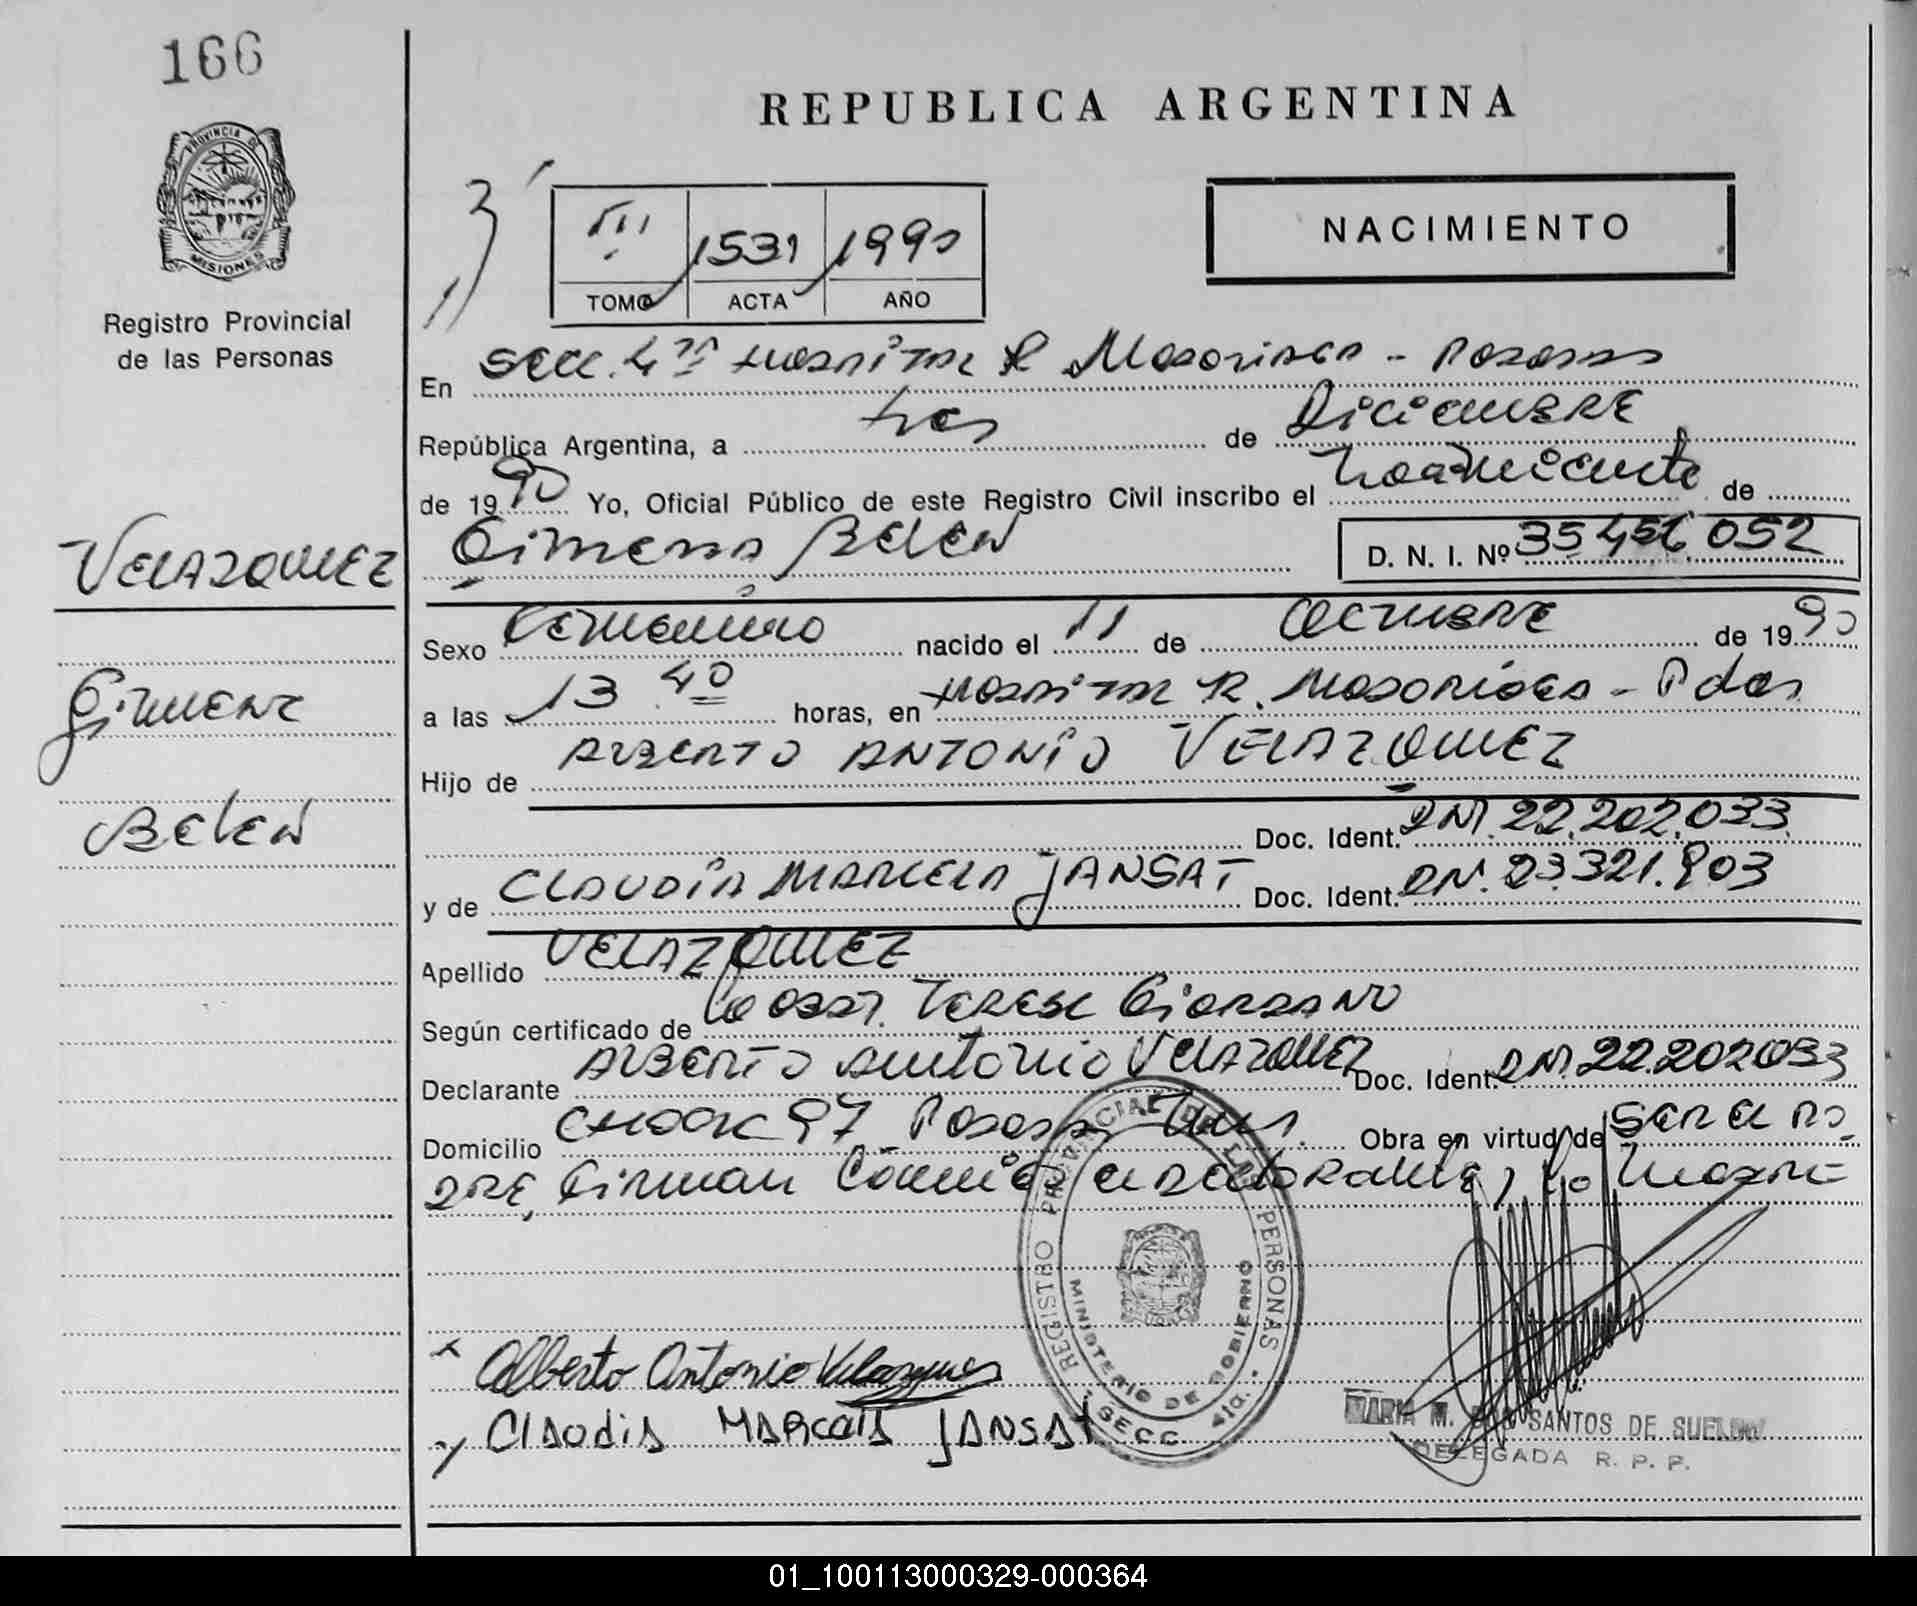 166
REPUBLICA ARGENTINA
PROVINCIA DE
MISIONES
Registro Provincial
de las Personas
III 1531 1990
TOMO ACTA AÑO
NACIMIENTO
En Secc. 4ta Hospital R Madariaga - Posadas
República Argentina, a tres de Diciembre
de 1990 Yo, Oficial Público de este Registro Civil inscribo el nacimiento de
VELAZQUEZ
Gimena Belen D. N. I. Nº 35.456.052
Sexo Femenino nacido el 11 de Octubre de 1990
Gimena
a las 13 40 horas, en Hospital R. Madariaga - Pdas
Hijo de Alberto Antonio VELAZQUEZ
Belen
Doc. Ident. DNI. 22.202.033
y de Claudia Marcela JANSAT Doc. Ident. DNI. 23.321.903
Apellido VELAZQUEZ
Según certificado de la Obst. Teresa Giordano
Declarante Alberto Antonio Velazquez Doc. Ident. DNI. 22.202033
Domicilio 97 Posadas Mnes. Obra en virtud de ser el pa
dre, Firman el declarante y la madre
Alberto Antonio Velazquez
Claudia Marcela JANSAT
REGISTRO PROVINCIAL DE LAS PERSONAS
MINISTERIO DE GOBIERNO
SECC 4ta.
MARIA M. DOS SANTOS DE SUELDO
DELEGADA R. P. P.
01_100113000329-000364